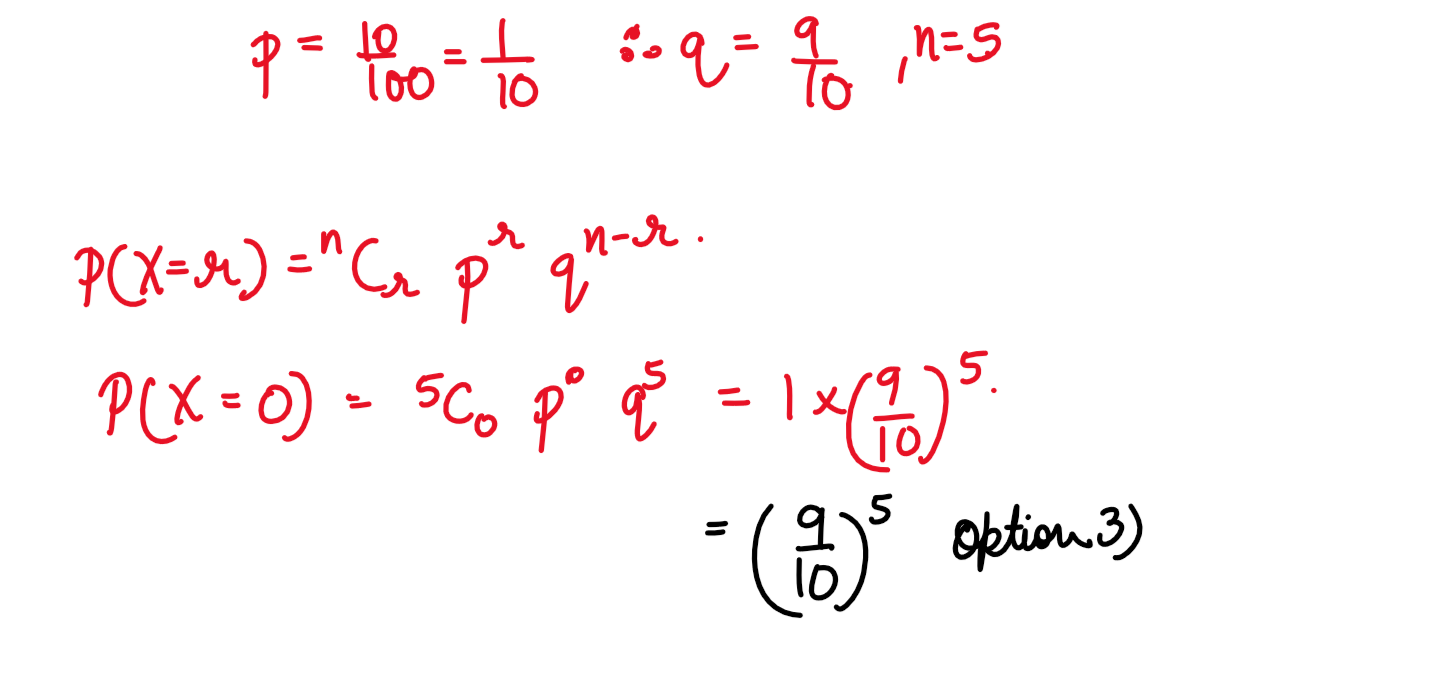 p = 10/100 = 1/10 ∴ q = 9/10 , n=5
P(X=r) = ⁿCᵣ pʳ qⁿ⁻ʳ .
P(X=0) = ⁵C₀ p⁰ q⁵ = 1 × (9/10)⁵.
= (9/10)⁵ option 3)